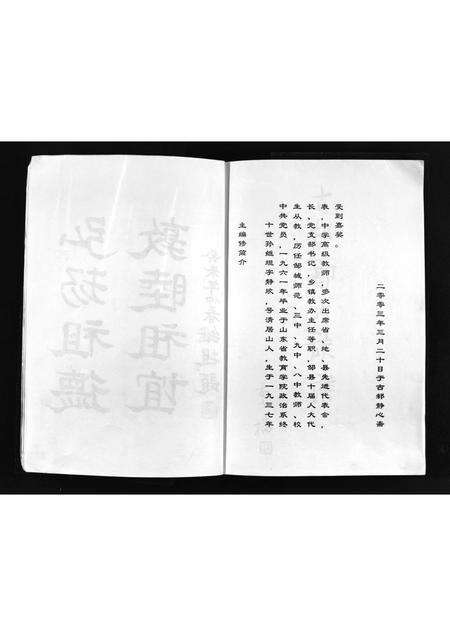 弘扬祖德
敦睦祖谊
主编修简介
十世孙继琨字静欣，号清居山人，生于一九三七年
中共党员，一九六一年毕业于山东省教育学院政治系终
生从教，历任邹城师范、三中、九中、八中教师、校
长、党支部书记、乡镇教办主任等职，邹县十届人大代
表，中学高级教师，多次出席省、地、县先进代表会，
受到嘉奖。
二零零三年三月二十日于古邾静心斋